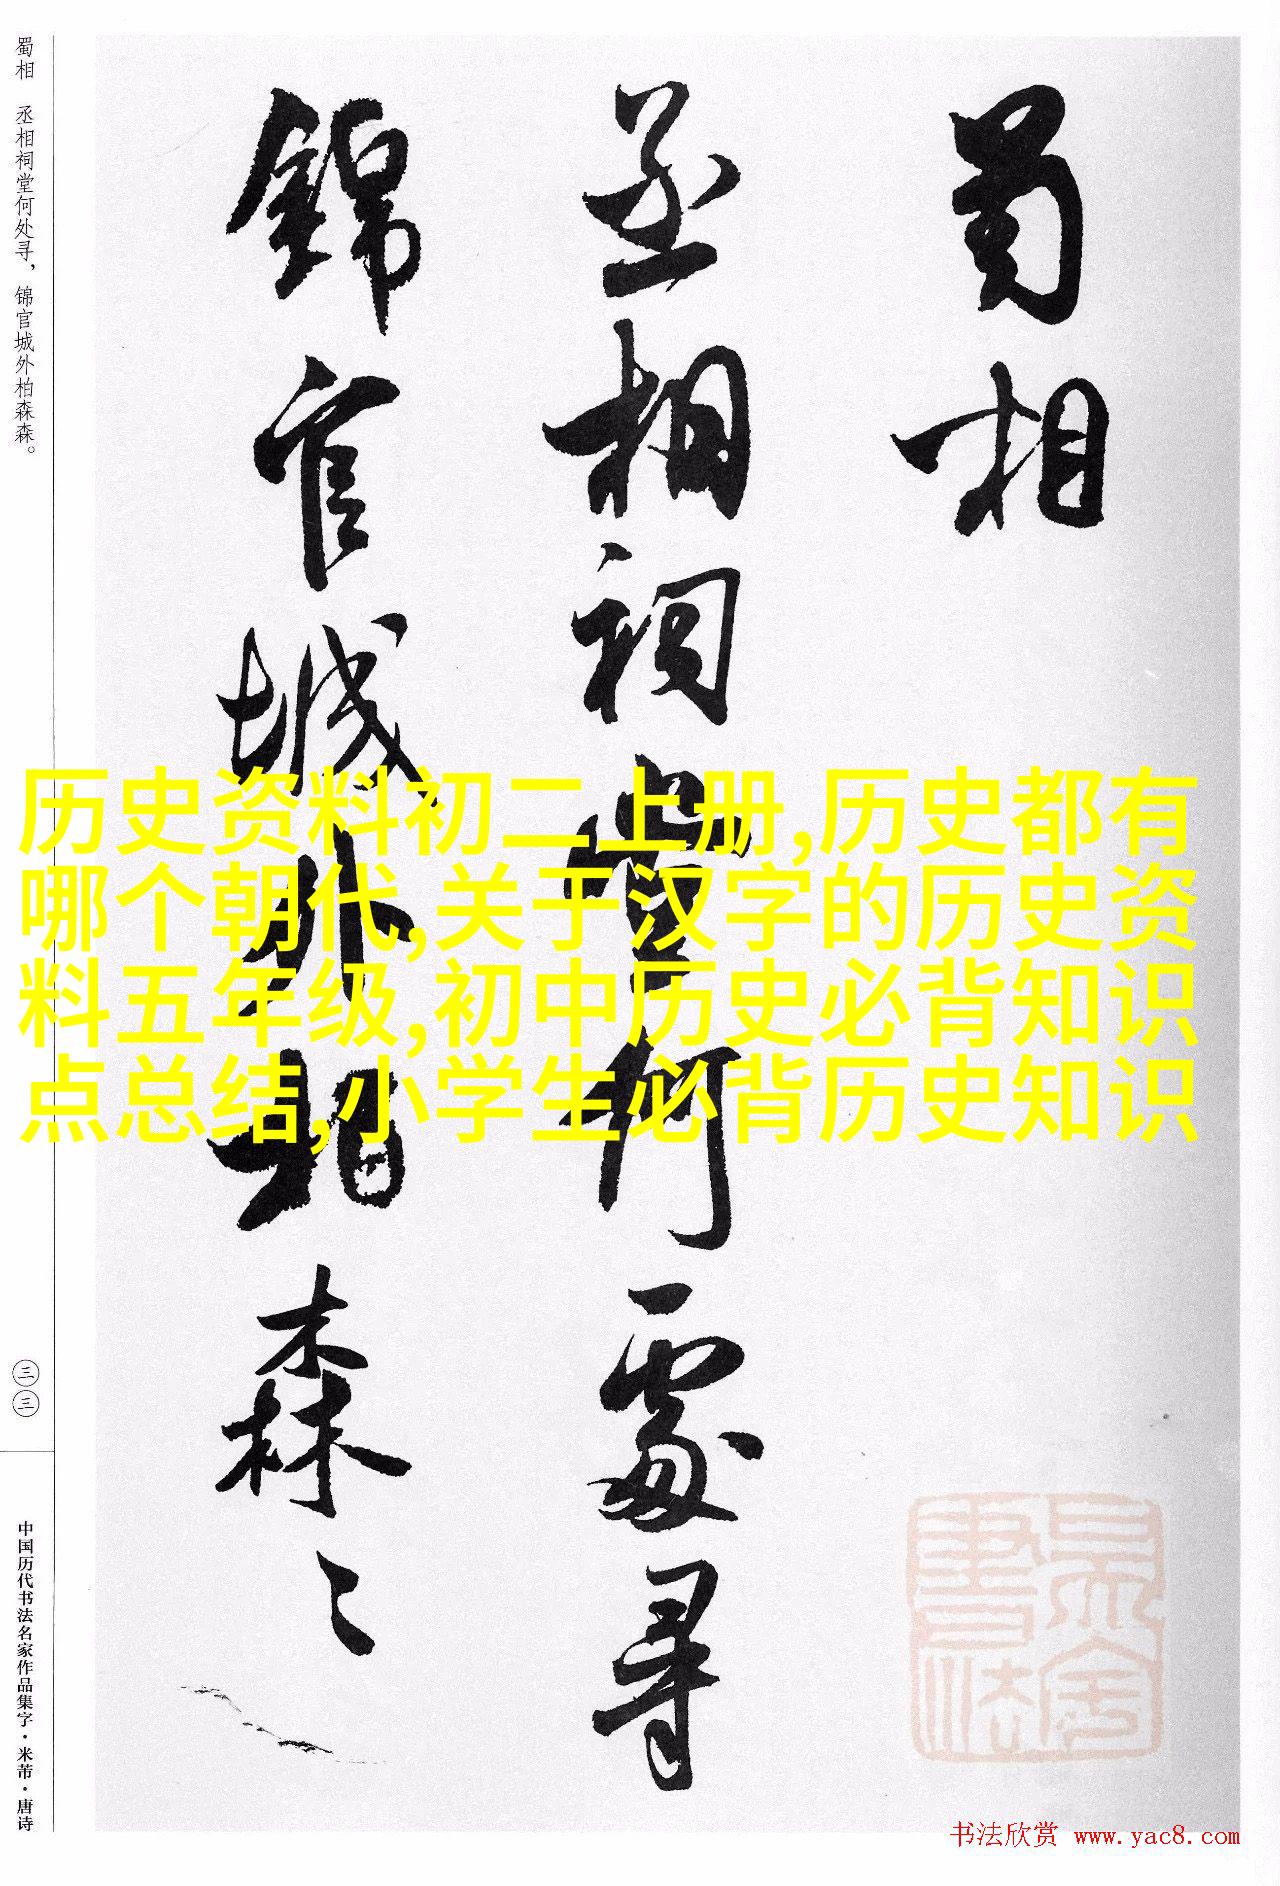 蜀相
丞相祠堂何處尋
錦官城外柏森〻
历史资料初二上册,历史都有
哪个朝代,关于汉字的历史资
料五年级,初中历史必背知识
点总结,小学生必背历史知识
蜀相 丞相祠堂何处寻，锦官城外柏森森。
三三
中国历代书法名家作品集字·米芾·唐诗
书法欣赏 www.yac8.com